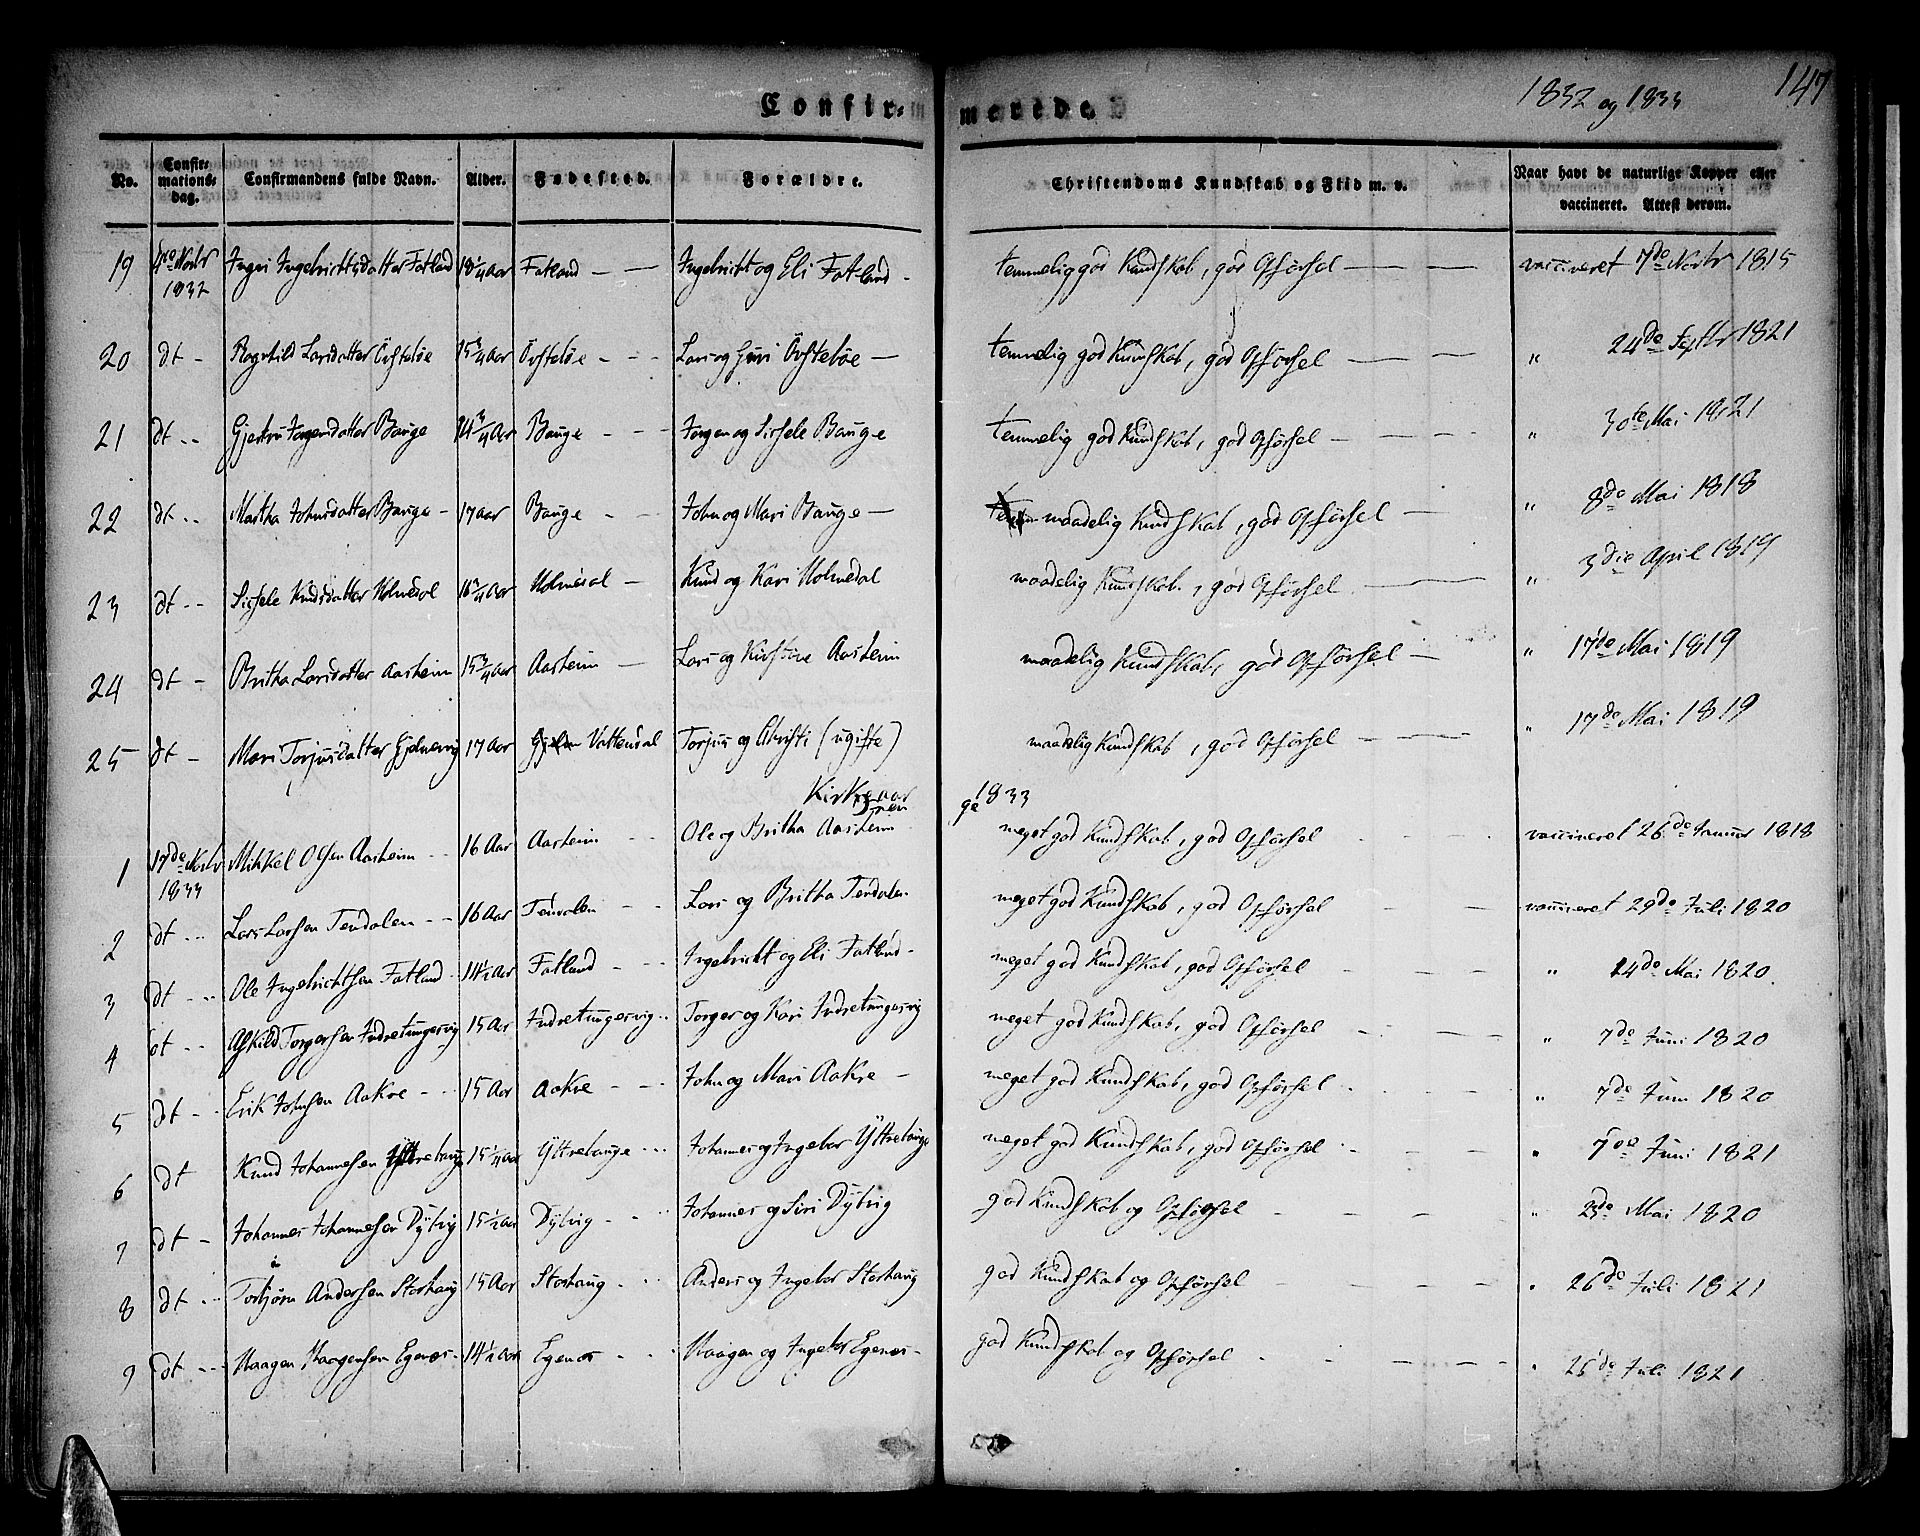 1832 og 1833
147
Confirmerede.
No.
Confirmations-dag.
Confirmandens fulde Navn.
Alder.
Fødested.
Forældre.
Christendoms Kundskab og Flid m. v.
Naar havt de naturlige Kopper eller vaccineret. Attest derom.
19 4de Novbr 1832 Ingeri Ingebrichtsdatter Fatland 18 1/4 Aar Fatland — — Ingebricht og Eli Fatland - temmelig god Kundskab, god Opførsel — — vaccineret 7de Novbr 1815
20 dt - Ragnhild Larsdatter Östeböe 15 3/4 Aar Östeböe — — Lars og Guri Östeböe — temmelig god Kundskab, god Opförsel — — " 24de Septbr 1821
21 dt - - Gjertru Jorgensdatter Bauge 14 3/4 Aar Bauge - - - Jorgen og Sissele Bauge temmelig god Kundskab, god Opförsel — — " 30te Mai 1821
22 dt - - Martha Johnsdatter Bauge - 17 Aar Bauge - - John og Mari Bauge — maadelig Kundskab, god Opförsel — — " 8de Mai 1818
23 dt - - Sissele Knudsdatter Holmedal 16 3/4 Aar Holmedal — Knud og Kari Holmedal maadelig Kundskab, god Opförsel — — " 3die April 1819
24 dt - Britha Larsdatter Aasheim 15 3/4 Aar Aasheim — Lars og Kirstine Aasheim maadelig Kundskab, god Opförsel — " 17de Mai 1819
25 dt - Mari Torjusdatter 17 Aar Vattendal Torjus og Christi (ugifte) maadelig Kundskab, god Opförsel — — " 17de Mai 1819
Kirkeaar 1833
1 17de Novbr 1833 Mikkel Olsen Aasheim - - 16 Aar Aasheim - - Ole og Britha Aasheim meget god Kundskab, god Opförsel vaccineret 26de Januar 1818
2 dt - - Lars Larsen Tendalen - - 16 Aar Tendalen - - Lars og Britha Tendalen meget god Kundskab, god Opförsel - — vaccineret 29de Juli 1820
3 dt - - Ole Ingebrichtsen Fatland 14 1/2 Aar Fatland - - Ingebricht og Eli Fatland - meget god Kundskab, god Opförsel - - — " 24de Mai 1820
4 dt - - Askild Torgersen Indretungesvig 15 Aar Indretungesvig - - Torger og Kari Indretungesvig meget god Kundskab, god Opförsel - — — " 7de Juni 1820
5 dt - - Erik Johnsen Aakre - - 15 Aar Aakre - - John og Mari Aakre - meget god Kundskab, god Opförsel - - — " 7de Juni 1820
6 dt Knud Johannessen Yttrebauge 15 1/4 Aar Yttrebauge - - - Johannes og Ingebor Yttrebauge meget god Kundskab, god Opförsel - - — " 7de Juni 1821
7 dt - Johannes Johannessen Dyvig 15 1/2 Aar Dyvig - - Johannes og Siri Dyvig god Kundskab og Opförsel - — — " 23de Mai 1820
8 dt - - Torbjørn Andersen Storhaug 15 Aar Storhaug - - Anders og Ingebor Storhaug god Kundskab og Opförsel - — — " 26de Juli 1821
9 dt - - Haagen Haagensen Egenæs - 14 1/2 Aar Egenæs - - Haagen og Ingebor Egenæs - god Kundskab og Opförsel - - — — " 25de Juli 1821